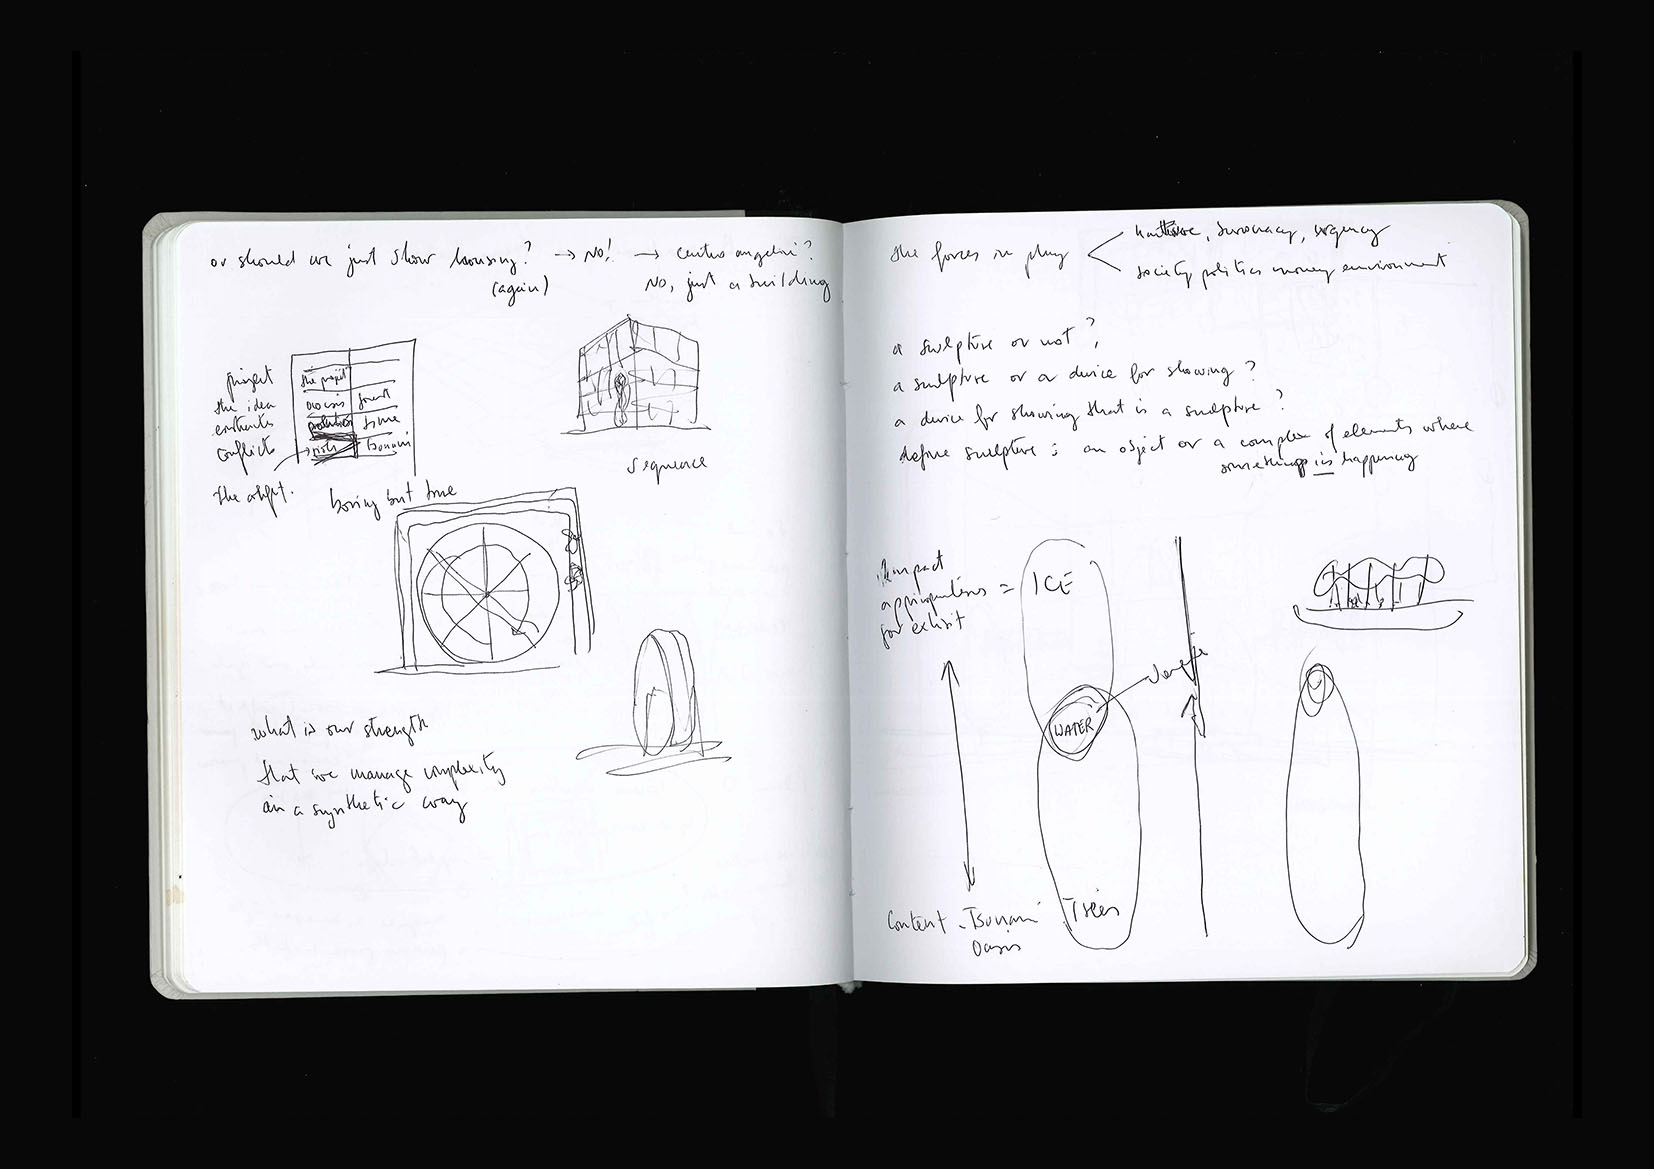 or should we just show housing? → NO! → centro angelini?
(again)
NO, just a building
project
the idea
conflicts
the project
forest
time
tsunami
boring but true
sequence
what is our strength
that we manage complexity
in a synthetic way
the forces in play
urgency
society politics money environment
a sculpture or not?
a sculpture or a device for showing?
a device for showing that is a sculpture?
define sculpture: an object or a complex of elements where
something is happening
impact
appropriateness =
for exhibit
ICE
WATER
Content - Tsunami
Oasis
Trees